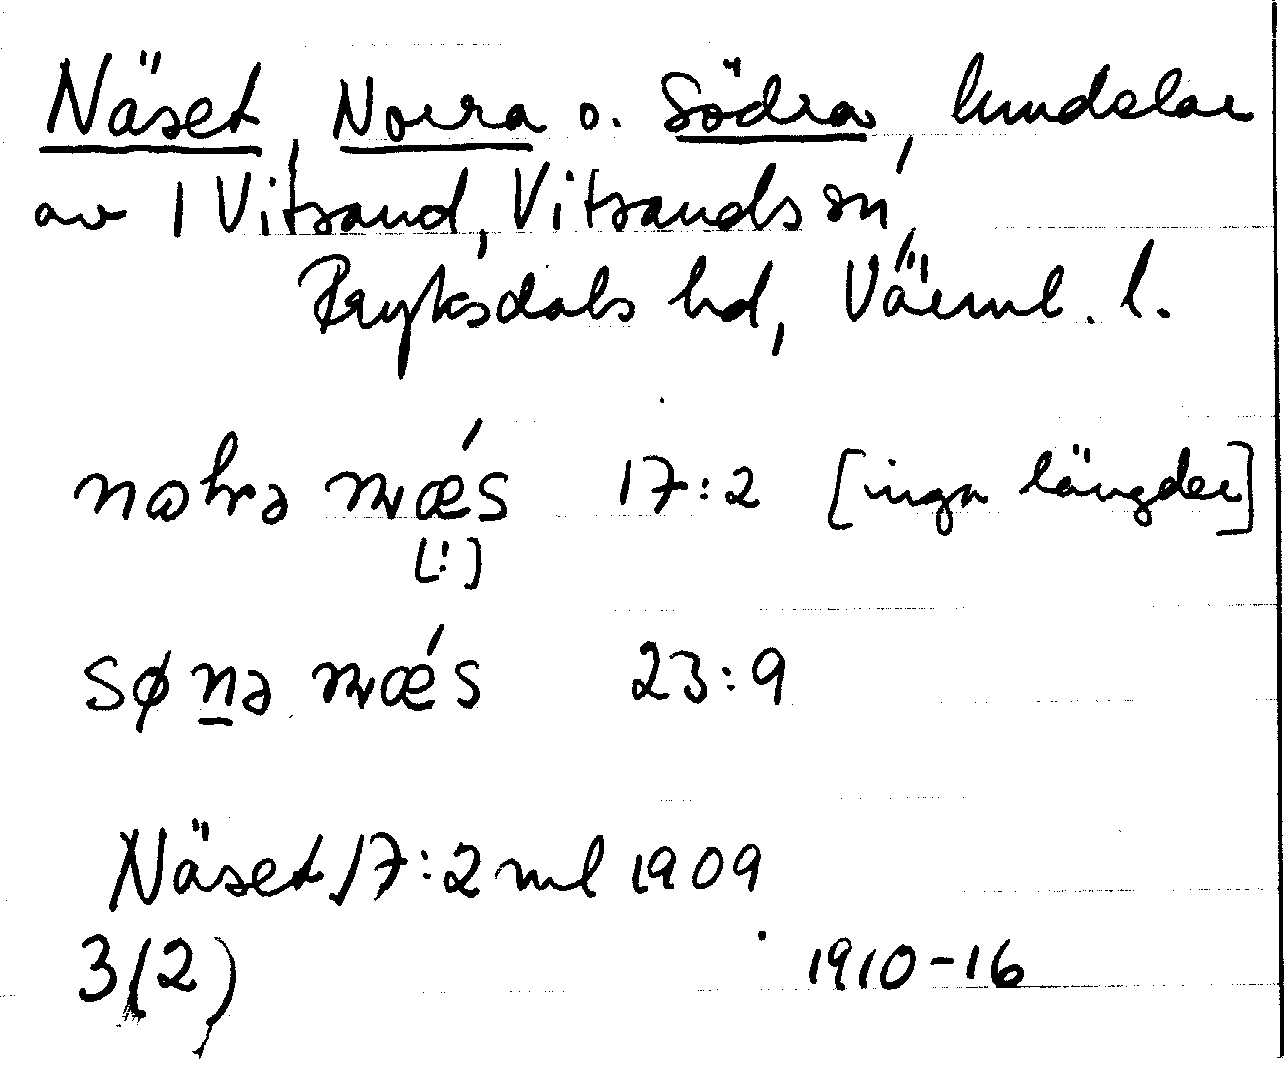 Näset, Norra o. Södra, lundelar
av 1 Vitsand, Vitsands sn,
Fryksdals hd, Värml. l.
nøhrə nǽs 17:2 [inga längder]
[!]
søn̲ə nǽs 23:9
Näset 17:2 ml 1909
3(2) 1910-16